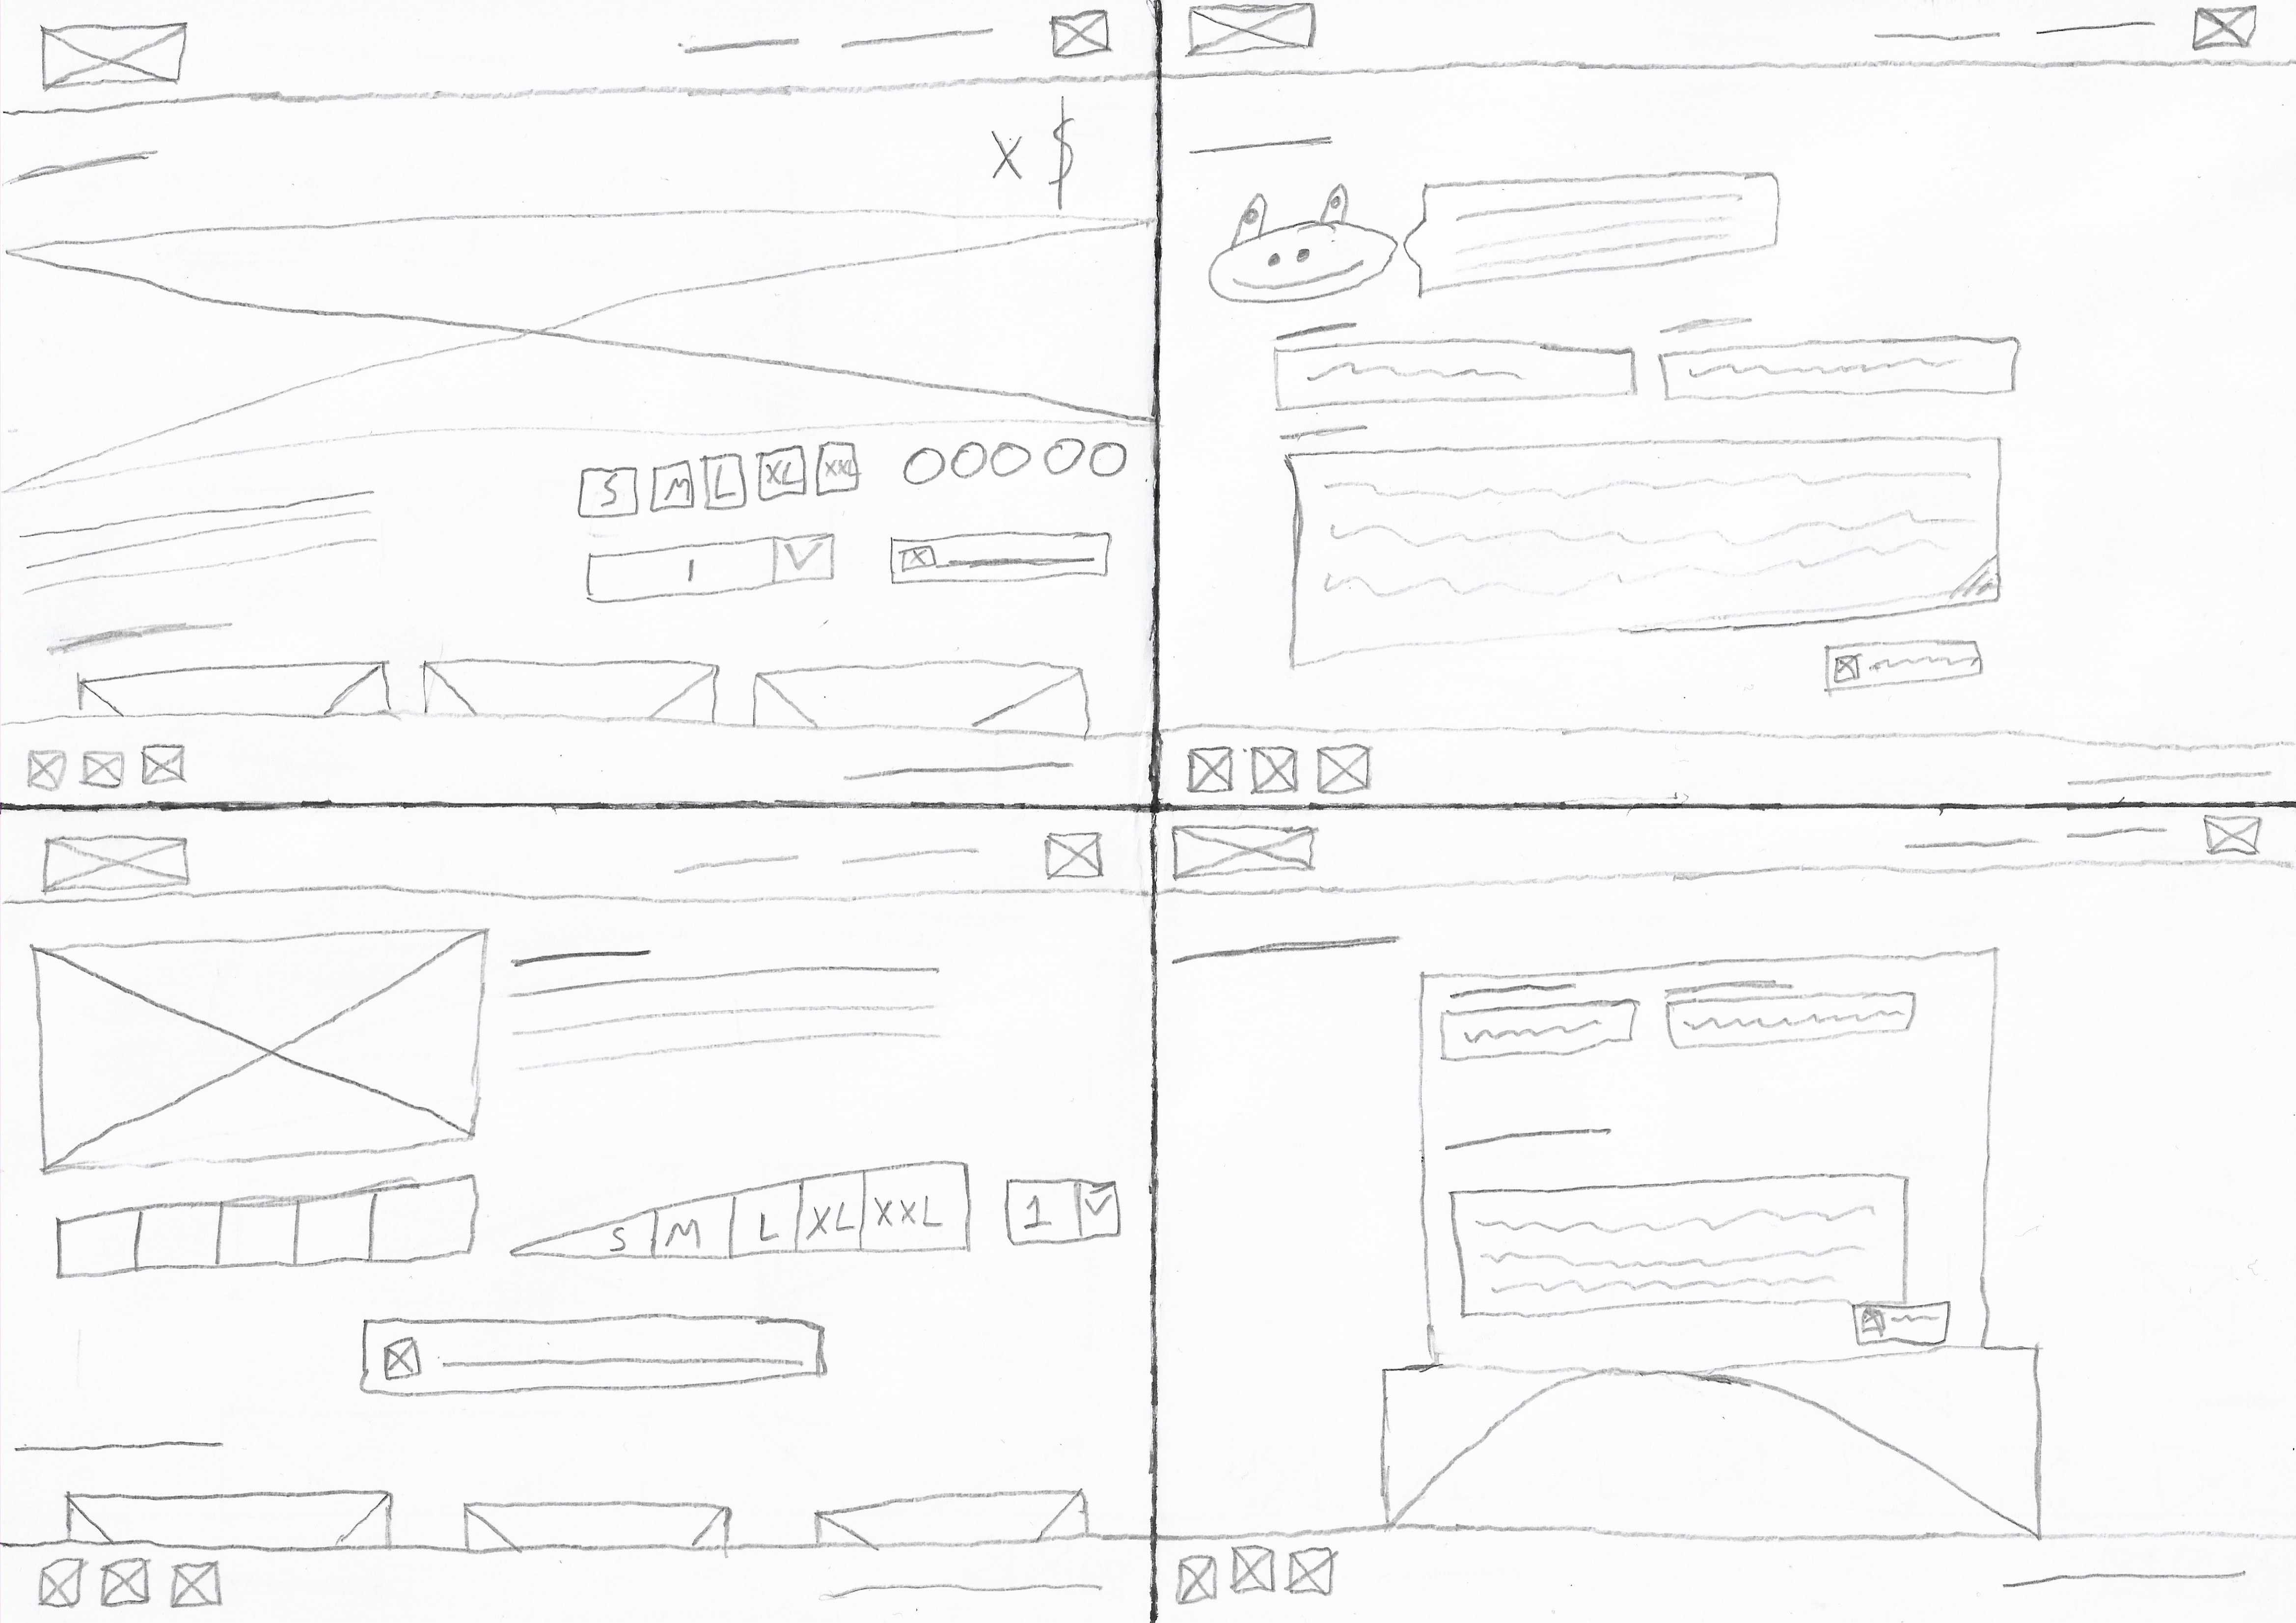 X $
S M L XL XXL
1
S M L XL XXL 1